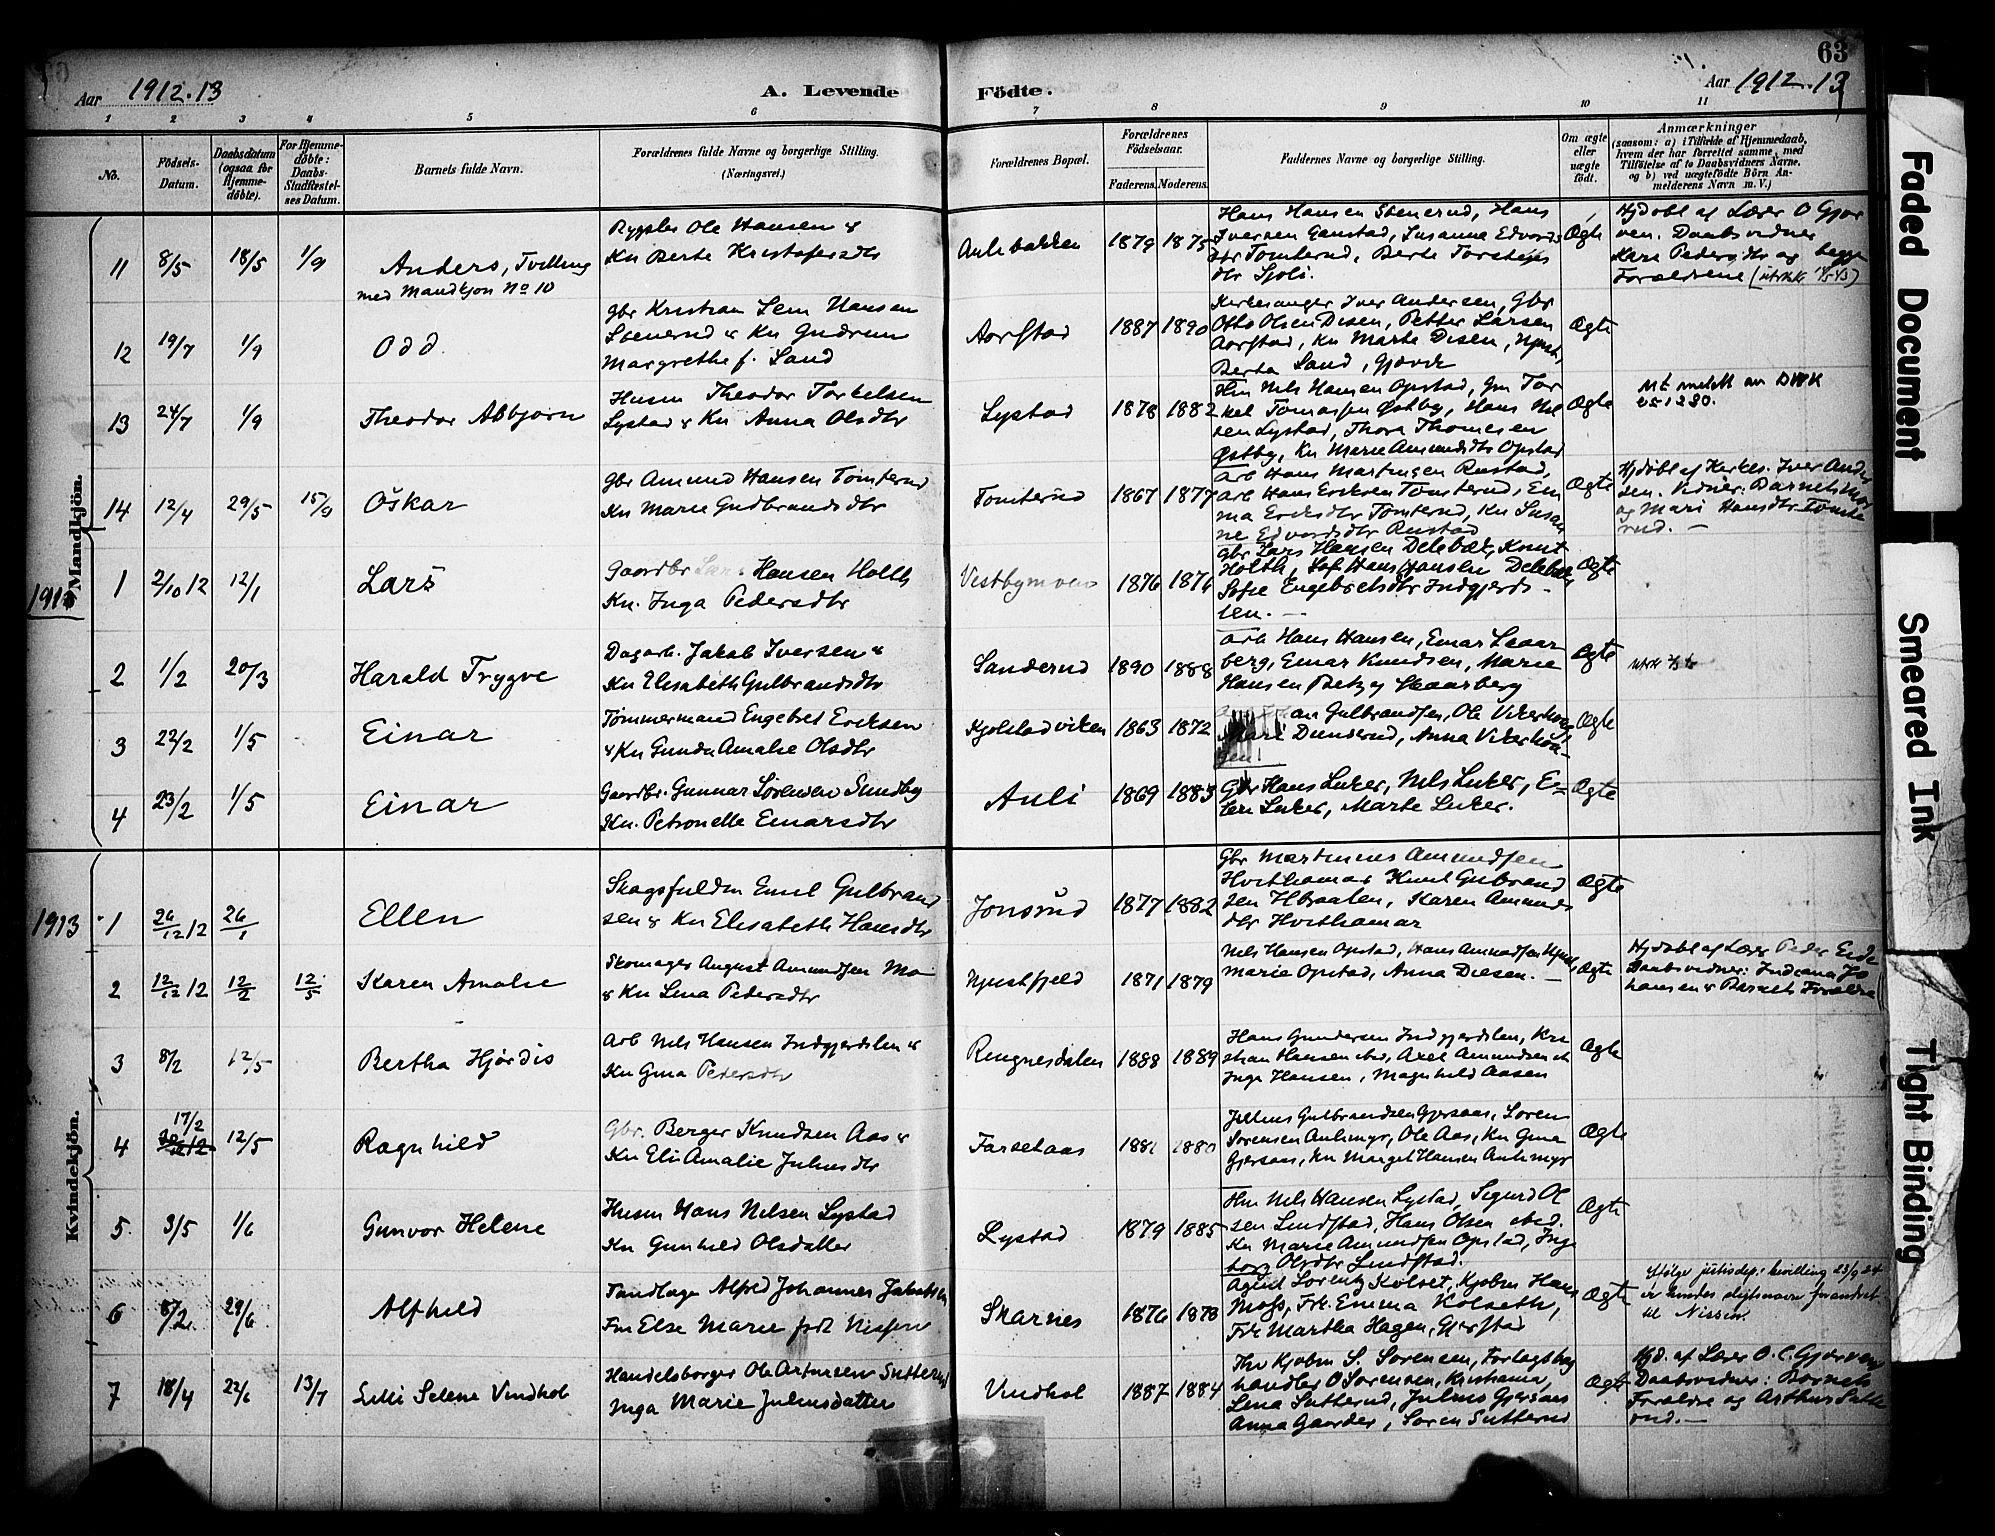 63
Aar 1912.13
A. Levende Födte.
Aar 1912.13
1 2 3 4 5 6 7 8 9 10 11
No.
Födsels-Datum.
Daabsdatum (ogsaa for Hjemme-døbte).
For Hjemme-døbte: Daabs-Stadfæstel-ses Datum.
Barnets fulde Navn.
Forældrenes fulde Navne og borgerlige Stilling.
(Næringsvei.)
Forældrenes Bopæl.
Forældrenes Födselsaar.
Faderens. Moderens.
Faddernes Navne og borgerlige Stilling.
Om ægte eller uægte født.
Anmærkninger
(saasom: a) i Tilfælde af Hjemmedaab, hvem der har forrettet samme, med Tilföielse af to Daabsvidners Navne, og b) ved uægtefödte Börn An-melderens Navn m. V.)
Mandkjön.
11 8/5 18/5 1/9 Anders, Tvilling
med Mandkjøn No 10
Ole Hansen &
Kn Berte Kristofersdtr
Aulebakken 1879 1875
Hans Hansen Stenerud, Hans
Iversen Ganstad, Susanna Edvards
dtr Tomterud, Berte Torstens
dtr Sjoli.
Ægte
Hjdøbt af Lærer O Gjør
ven. Daabsvidner
Kari Pedersdtr og begge
Forældrene
12 19/7 1/9 Odd
gbr Kristian Lem Hansen
Stenerud & Kn Gudrun
Margrethe f. Sand
Aorstad 1887 1890
Kirkesanger Iver Andersen, Gbr
Otto Olsen Disen, Petter Larsen
Aorstad, Kn Marte Disen,
Berta Sand, Gjøvik
Ægte
13 24/7 1/9 Theodor Asbjørn
Husm Theodor Torkelsen
Lystad & Kn Anna Olsdtr
Lystad 1878 1882
Hm Nils Hansen Opstad, Gm Tor
kel Tomassen Østby, Hans Nil
sen Lystad, Thora Thomesen
Østby, Kn Marie Amundsdtr Opstad
Ægte
14 12/4 29/5 15/9 Oskar
gbr Amund Hansen Tomterud
Kn Marie Gudbrandsdtr
Tomterud 1867 1877
Arb Hans Martinsen Rustad,
Arb Hans Eriksen Tomterud, Em
ma Eriksdtr Tomterud, Kn Susan
ne Edvardsdtr Rustad
Ægte
Hjdøbt af Kirkes. Iver Ander
sen. Vidner: Barnets mor
og Mari Hansdtr Tomte
rud. —
1913
1 2/10 12 12/1 Lars
Gaardbr Lars Hansen Holth
Kn. Inga Pedersdtr
Vestbymoen 1876 1876
gbr Lars Hansen Delebæk, Knut
Holth, Hans Hansen Delebæk
Sofie Engebretsdtr Indgjerds-
len. —
Ægte
2 1/2 20/3 Harald Trygve
Dagarb. Jakob Iversen &
Kn Elisabeth Gulbrandsdtr
Sanderud 1890 1888
Arb Hans Hansen, Einar Skaar
berg, Einar Knudsen, Marie
Hansen Betzy Skaarberg
Ægte
3 22/2 1/5 Einar
Tømmermand Engebret Eriksen
& Kn Gunda Amalie Olsdtr
Kjølstadviken 1863 1872
Gulbrandsen, Ole Vikerhau
Mari Dunderud, Anna Vikerhau-
gen
Ægte
4 23/2 1/5 Einar
Gaardbr. Gunnar Sørensen Sundby
Kn. Petronelle Einarsdtr
Auli 1869 1883
Gbr Hans Luker, Nils Luker, E=
len Luker, Marte Luker.
Ægte
Kvindekjön.
1913 1 26/12 12 26/1 Ellen
Skogsfuldm Emil Gulbrand
sen & Kn Elisabeth Hansdtr
Jonsrud 1877 1882
Gbr Martinius Amundsen
Hvithamar Knut Gulbrand
sen Hbraaten, Karen Amunds
dtr Hvithamar
Ægte
2 12/12 12 12/2 12/5 Karen Amalie
Skomager August Amundsen Mo
& Kn Lina Pedersdtr
Njustfjeld 1871 1879
Nils Hansen Opstad, Hans Amundsen
Marie Opstad, Anna Disen. —
Ægte
Hjdøbt af Lærer Peder Eide
Daabsvidner: Indiana Jo
hansen & Barnets Forældre
3 8/2 12/5 Bertha Hjørdis
Arb Nils Hansen Indgjerdslen &
Kn Gina Pedersdtr
Rengnesdalen 1888 1889
Hans Gundersen Indgjerdslen, Kri
stian Hansen ibid, Axel Amundsen
Inga Hansen, Magnhild Aasen
Ægte
4 17/2 12/5 Ragnhild
Gbr. Berger Knudsen Aas &
Kn Eli Amalie Juliusdtr
Farsetaas 1881 1880
Julius Gulbrandsen Gjersaas, Søren
Sørensen Aulimyr, Ole Aas, Kn Gina
Gjersaas, Kn Margit Hansen Aulimyr
Ægte
5 3/5 1/6 Gunvor Helene
Husm Hans Nilsen Lystad
Kn Gunhild Olsdatter
Lystad 1879 1885
Hm Nils Hansen Lystad, Sigurd Ol
sen Lindstad, Hans Olsen ibid.
Kn Marie Amundsen Opstad, Inge
borg Olsdtr Lindstad.
Ægte
6 8/2 29/6 Alfhild
Tandlæge Alfred Johannes Jakobsen
Fru Else Marie født Nissen
Skarnes 1876 1878
Agent Lorentz Kolset, Kjøbm Hans
Moss, Frk. Emma Kolseth,
Frk Martha Hagen, Gjerstad
Ægte
Ifølge justisdep. bevilling 23/9 24
er hendes slegtsnavn forandret
til Nissen.
7 18/4 22/6 13/7 Lilli Selene Vindhol
Handelsborger Ole Arturesen Sutterud
Inga Marie Juliusdatter
Vindhol 1887 1884
Kjøbm S. Sørensen, Forlagsbog
handler O Sørensen, Kristiania,
Lina Sutterud, Julius Gjersaas
Anna Gaarder, Søren Sutterud
Ægte
Hjd. af Lærer O. C. Gjørven
Daabsvidner: Barnets
Forældre og Arthur Sutte
rud. —
Faded Document
Smeared Ink
Tight Binding